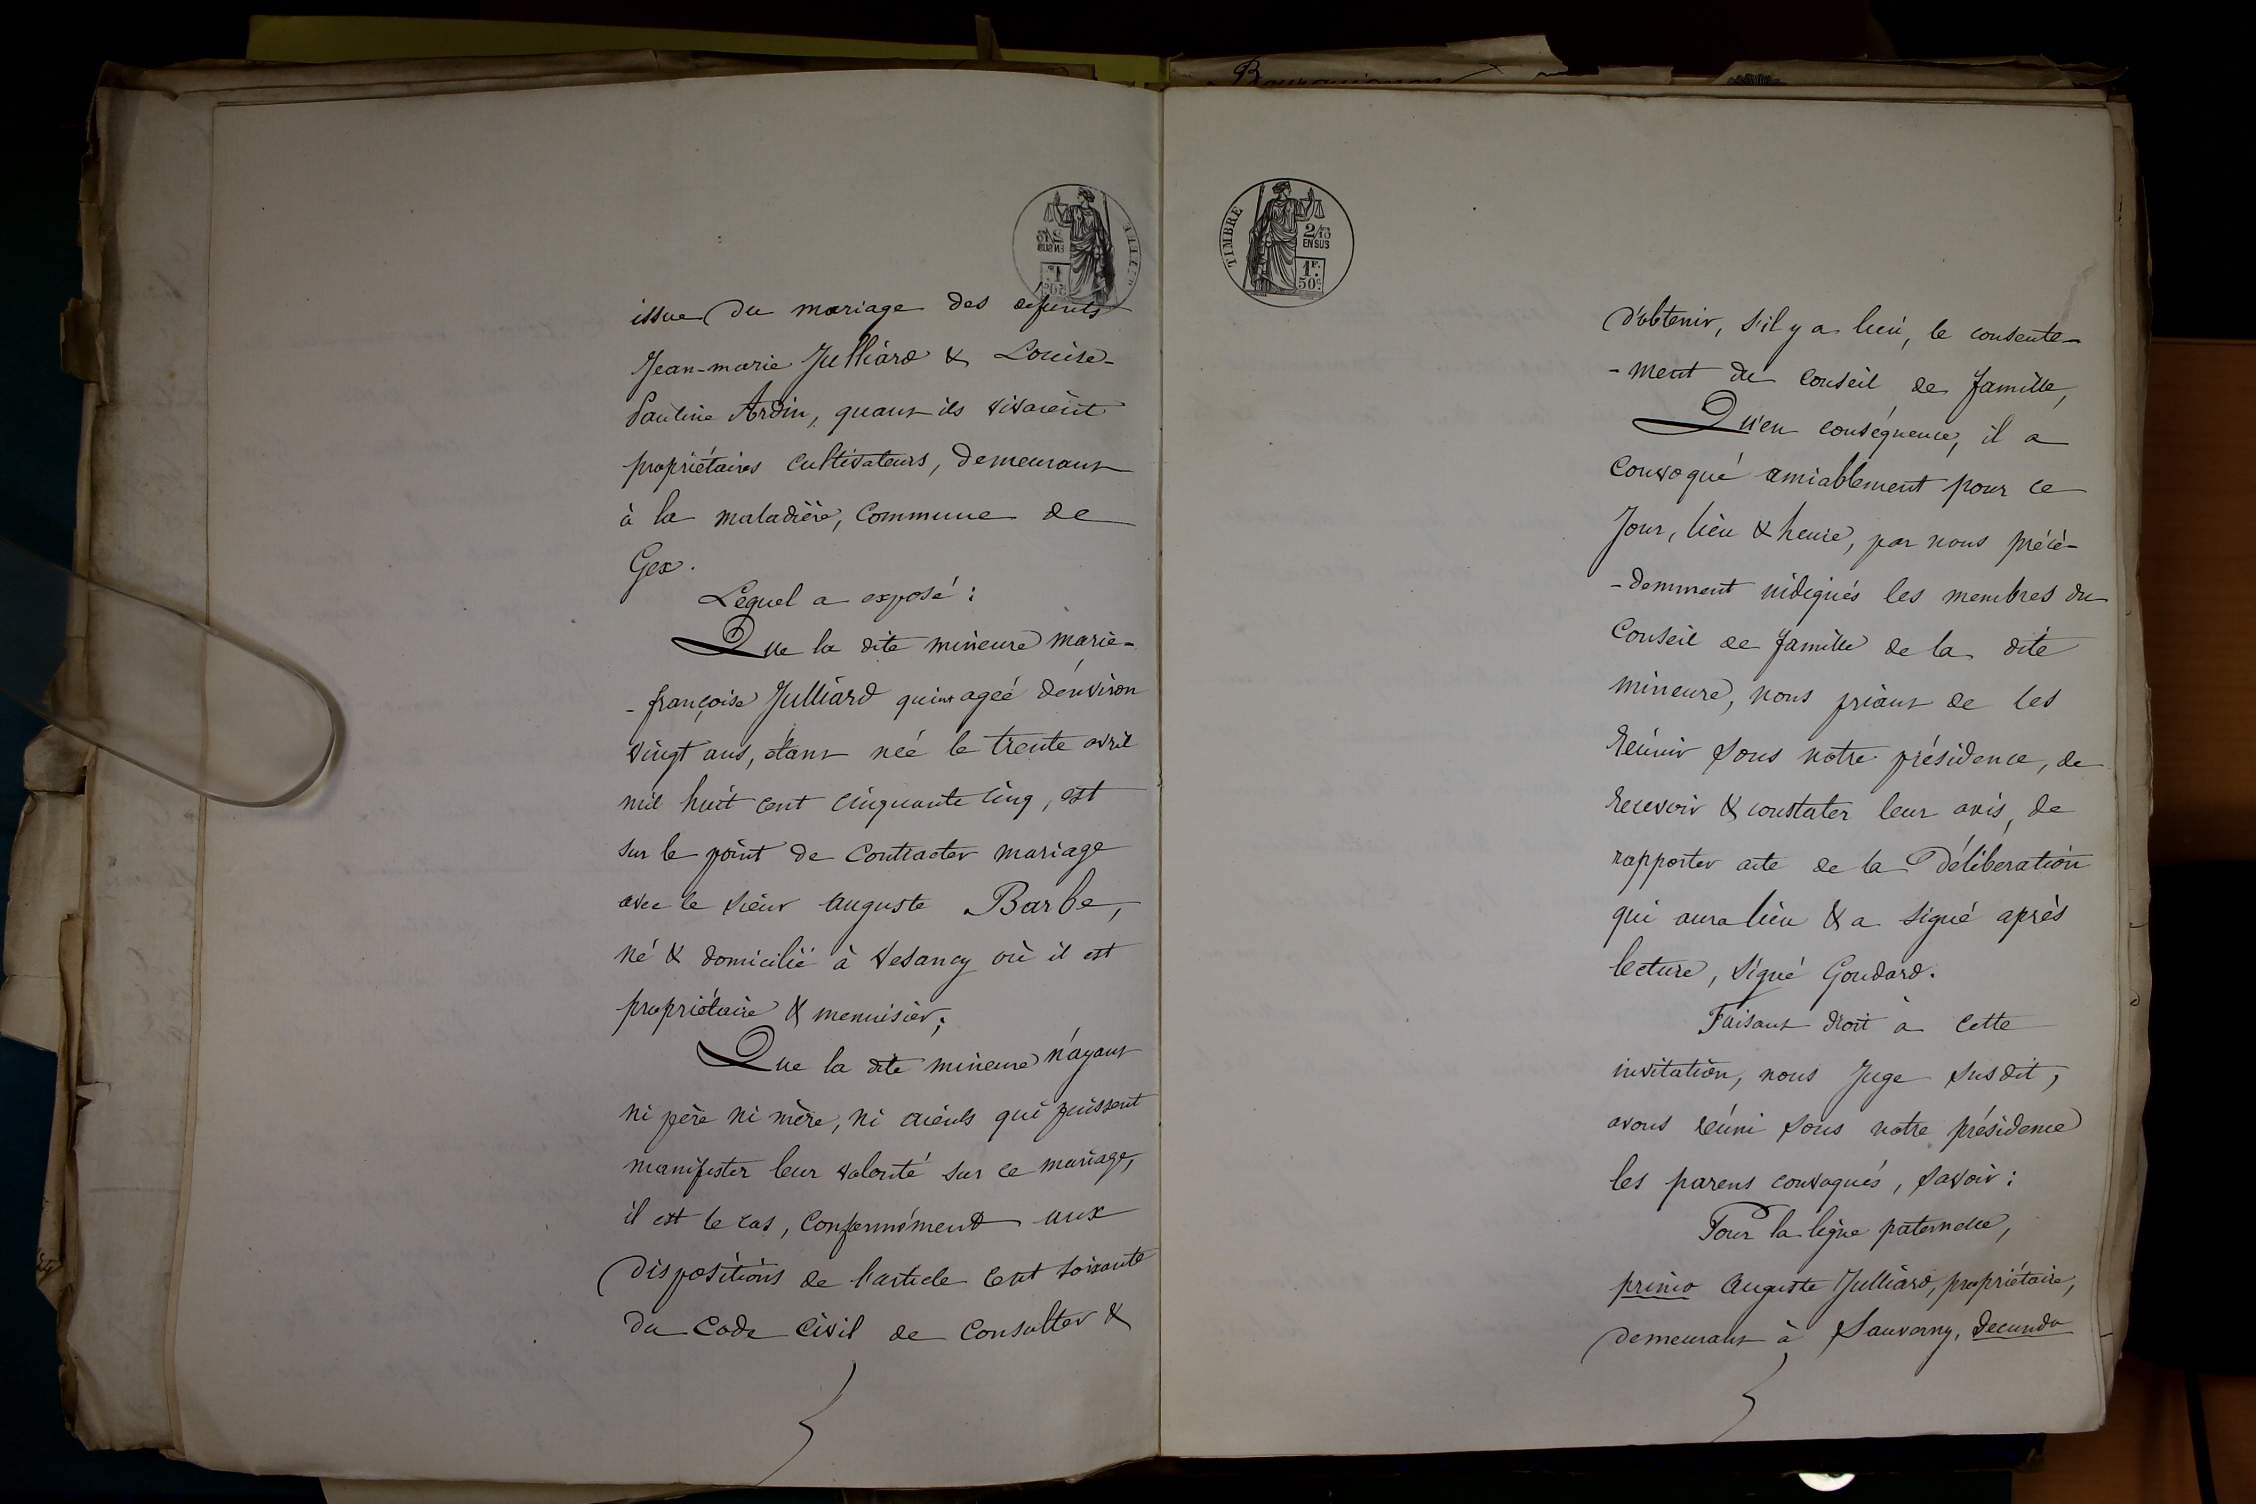 issue du mariage des defunts
Jean-marie Julliard & Louise-
Pauline Ardin, quant ils vivaient
propriétaires cultivateurs, demeurant
à la maladière, Commune de
Gex.
Lequel a exposé :
Que la dite mineure marie-
-françoise Julliard agée d'environ
vingt ans, étant née le trente avril
mil huit cent cinquante cinq, est
sur le point de contracter mariage
avec le sieur auguste Barbe,
né & domicilié à Vesancy où il est
propriétaire & menuisier;
Que la dite mineure n'ayant
ni père ni mère, ni aïeuls qui puissent
manifester leur volonté sur ce mariage,
il est le cas, conformément aux
dispositions de l'article Cent soixante
du Code Civil de Consulter &
TIMBRE
2/10
EN SUS
1F.
50c.
d'obtenir, s'il y a lieu, le consente-
-ment du Conseil de famille,
Qu'en conséquence, il a
convoqué amiablement pour ce
Jour, lieu & heure, par nous précé-
-demment indiqués les membres du
Conseil de famille de la dite
mineure, nous priant de les
Réunir sous notre présidence, de
Recevoir & constater leur avis, de
rapporter acte de la Déliberation
qui aura lieu & a signé après
lecture, signé Goudard.
Faisant droit à cette
invitation, nous Juge susdit,
avons réuni sous notre présidence
les parens convoqués, savoir :
Pour la ligne paternelle,
primo Auguste Julliard, propriétaire,
demeurant à Sauverny, Secundo